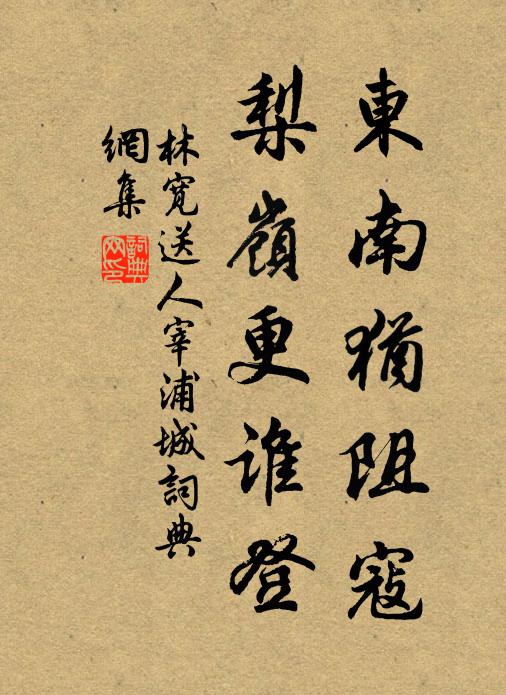 東南猶阻寇
梨嶺更誰登
林寬送人宰浦城詞典
網集
詞典
网印